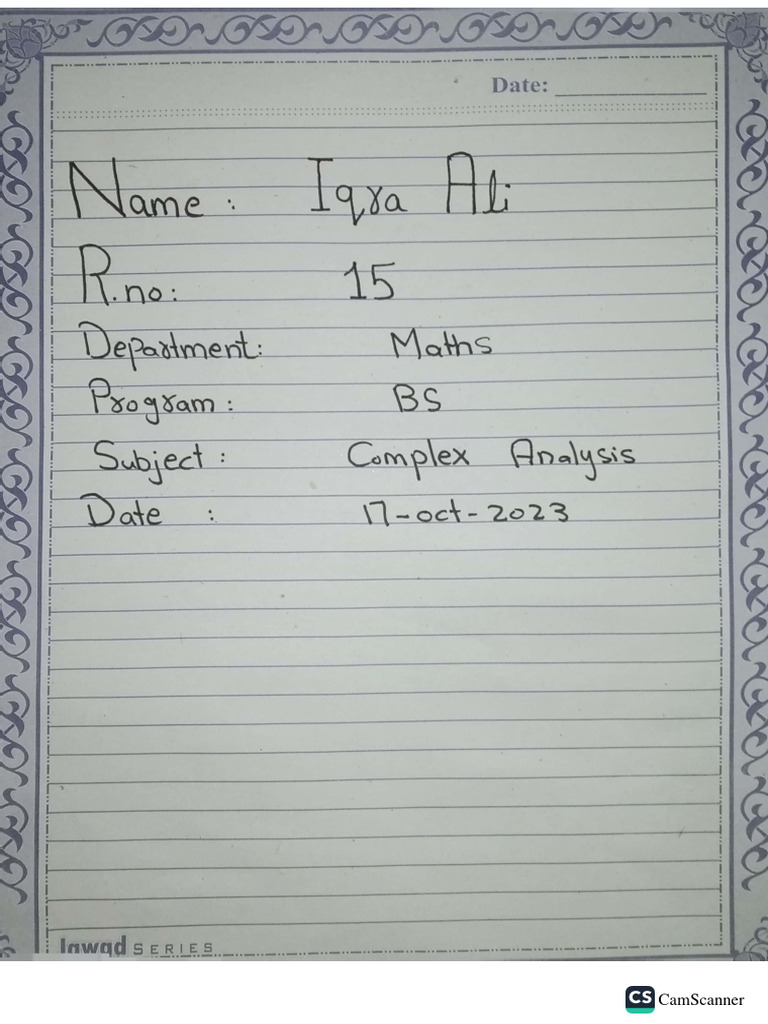 Date: ______________
Name : Iqra Ali
R.no: 15
Department: Maths
Program : BS
Subject : Complex Analysis
Date : 17-oct-2023
Jawad SERIES
CS CamScanner